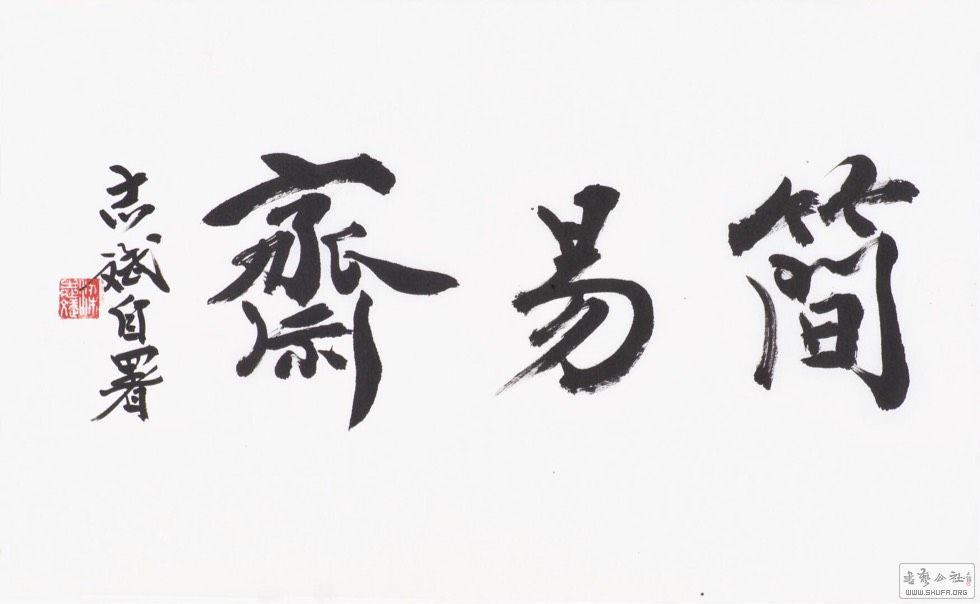 簡易齋
志斌自署
書藝公社
WWW.SHUFA.ORG